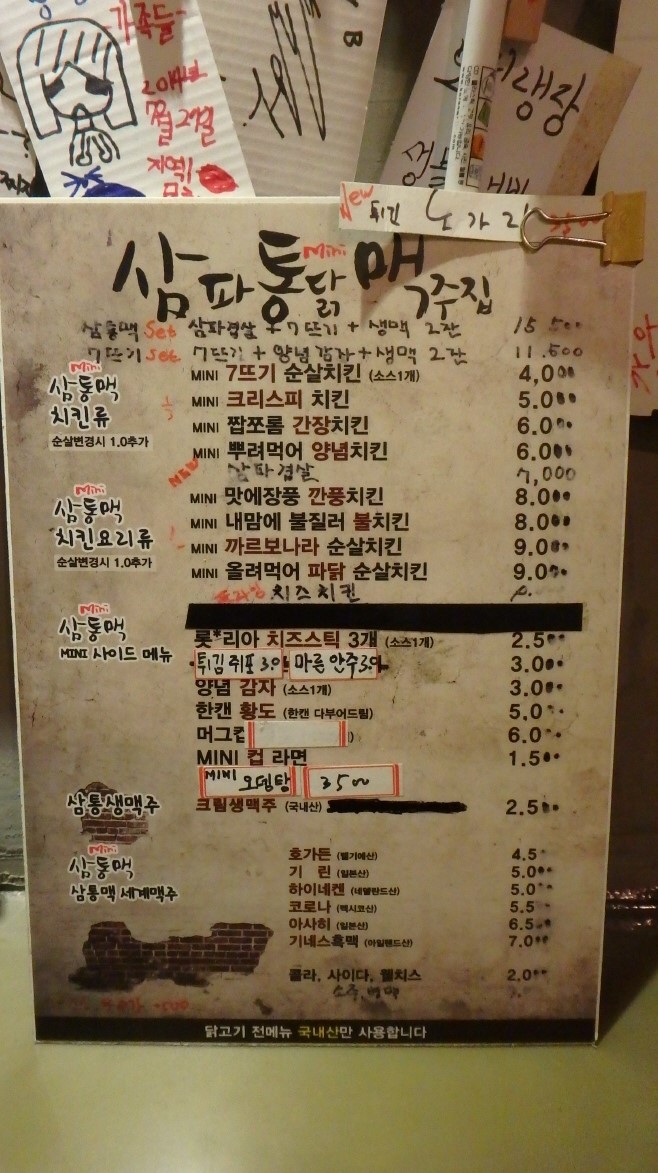 가족들
2014년
지역
B
New
튀김 노가리
삼파통닭 Mini 맥주집
삼통맥 Set 삼파겹살 + 7뜨기 + 생맥 2잔 15.500
7뜨기 Set 7뜨기 + 양념감자 + 생맥 2잔 11.500
Mini
삼통맥
치킨류
순살변경시 1.0추가
MINI 7뜨기 순살치킨 (소스1개) 4,000
MINI 크리스피 치킨 5.000
MINI 짭쪼롬 간장치킨 6.000
MINI 뿌려먹어 양념치킨 6.000
NEW 삼파겹살 7,000
Mini
삼통맥
치킨요리류
순살변경시 1.0추가
MINI 맛에장풍 깐풍치킨 8.000
MINI 내맘에 불질러 불치킨 8.000
MINI 까르보나라 순살치킨 9.000
MINI 올려먹어 파닭 순살치킨 9.000
치즈치킨
Mini
삼통맥
MINI 사이드 메뉴
롯*리아 치즈스틱 3개 (소스1개) 2.500
튀김쥐포 3.0 마른안주 3.0 3.000
양념 감자 (소스1개) 3.000
한캔 황도 (한캔 다부어드림) 5.000
머그컵 ) 6.0
MINI 컵 라면 1.500
MINI 오뎅탕 3500
삼통생맥주
크림생맥주 (국내산) 2.500
Mini
삼통맥
삼통맥 세계맥주
호가든 (벨기에산) 4.5
기 린 (일본산) 5.000
하이네켄 (네델란드산) 5.0
코로나 (멕시코산) 5.5
아사히 (일본산) 6.500
기네스흑맥 (아일랜드산) 7.000
콜라, 사이다, 웰치스 2.000
소주, 맥주
닭고기 전메뉴 국내산만 사용합니다